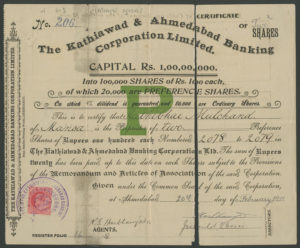 No. 206
CERTIFICATE
OF Two
SHARES
The Kathiawad & Ahmedabad Banking
Corporation Limited.
CAPITAL Rs. 1,00,00,000.
Into 100,000 SHARES of Rs. 100 each,
of which 20,000 are PREFERENCE SHARES.
On which 6% dividend is guaranteed and 80,000 are Ordinary Shares.
This is to certify that Mulchand
of Mansa is the Proprietor of Two Preference
Shares of Rupees one hundred each Numbered 2078 to 2079 in
The Kathiawad & Ahmedabad Banking Corporation Ltd. The sum of Rupees
Twenty has been paid up to this date on each Shares subject to the Provisions
of the Memorandum and Articles of Association of the said Corporation.
Given under the Common Seal of the said Corporation,
at Ahmedabad 20th of February
AGENTS.
REGISTER FOLIO
P
THE KATHIAWAD & AHMEDABAD BANKING CORPORATION LIMITED